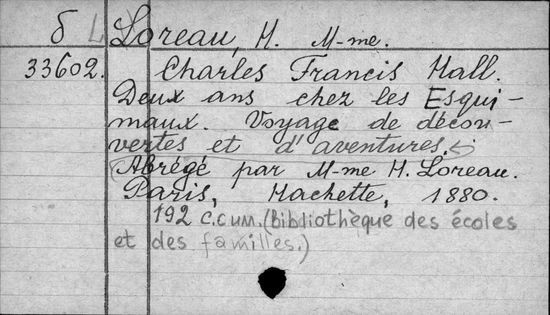 б L Loreau, H. M-me.
33602. Charles Francis Hall.
Deux ans chez les Esqui-
maux. Voyage de décou-
vertes et d'aventures.
Abrégé par M-me H. Loreau.
Paris, Hachette, 1880.
192 c. с илл. (Bibliothèque des écoles
et des familles.)